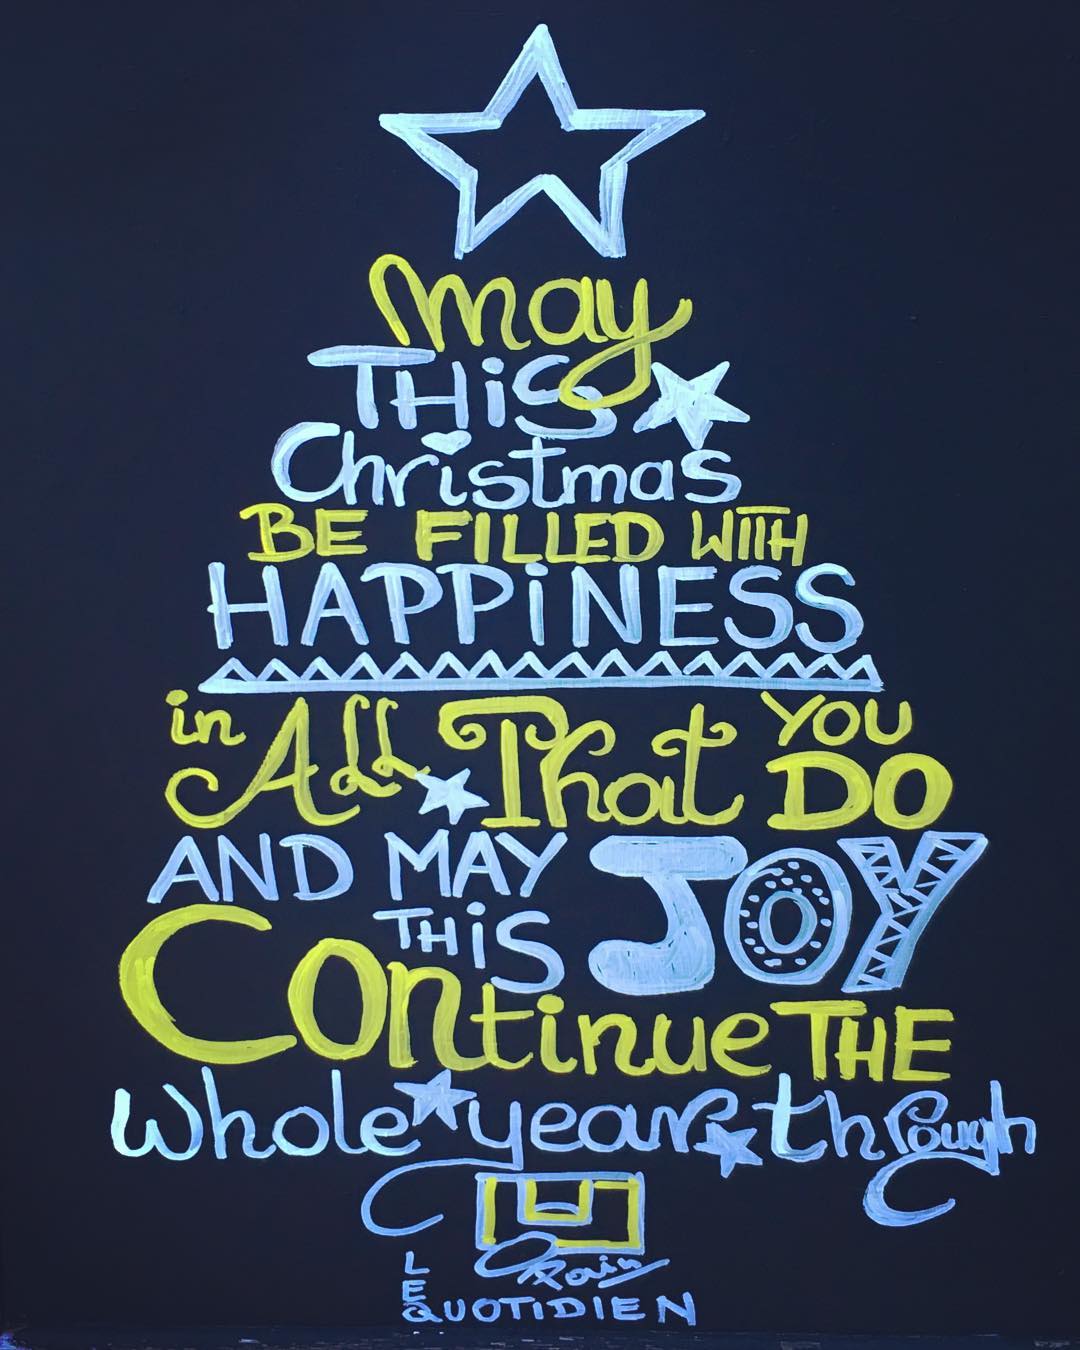 may
THiS
Christmas
BE FILLED WITH
HAPPiNESS
in ALL That YOU DO
AND MAY THiS JOY
Continue THE
whole year through
Pain
LE QUOTIDIEN